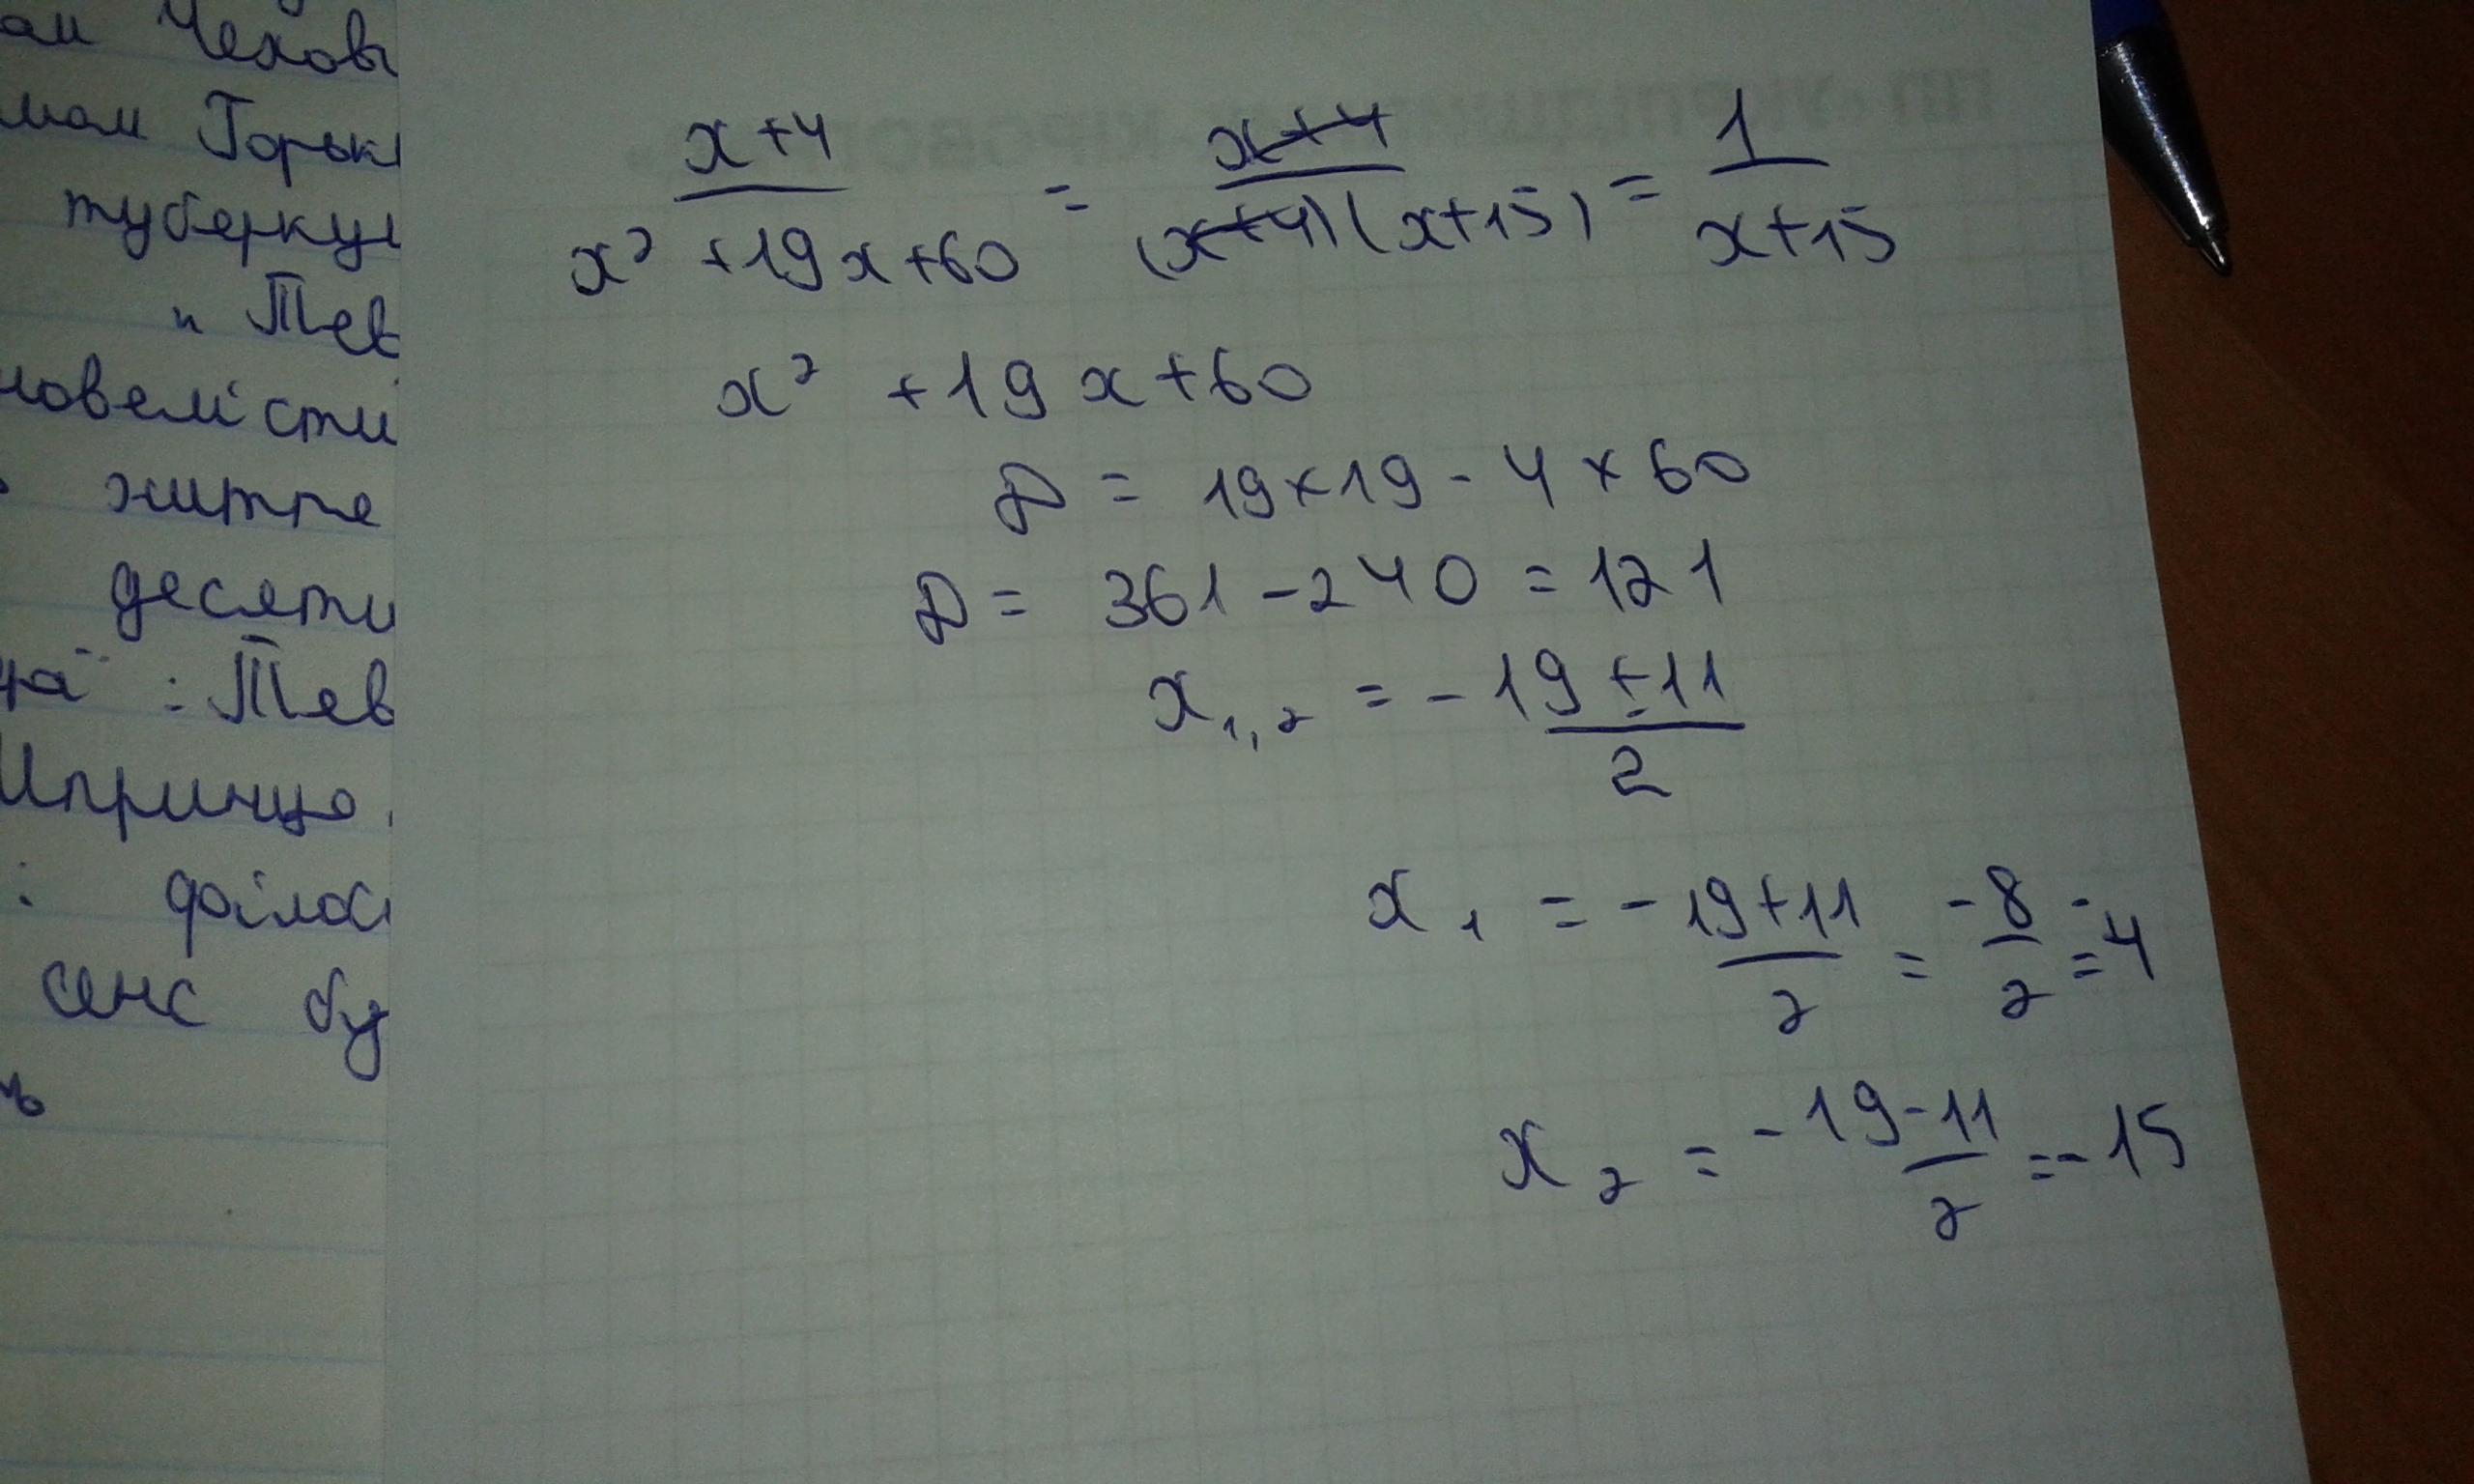 ам Чехов
мом Горьк
туберкул
и Тев
новелісти
житте
десяти
ца" : Тев
принцо
: філос
сенс бу
ь
x+4 / x² +19x+60 = x+4 / (x+4)(x+15) = 1 / x+15
x² +19x+60
D = 19×19-4×60
D = 361-240=121
x₁,₂ = -19±11 / 2
x₁ = -19+11 / 2 = -8 / 2 = -4
x₂ = -19-11 / 2 = -15